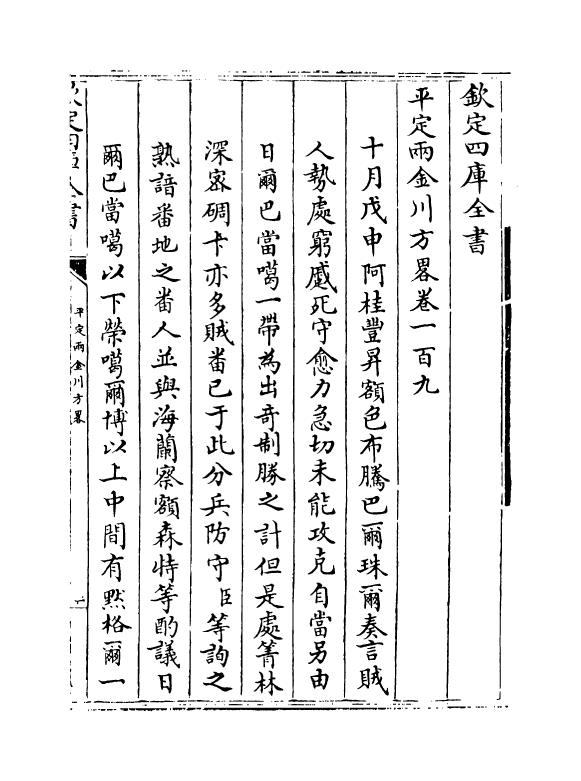 欽定四庫全書
平定兩金川方畧卷一百九
十月戊申阿桂豐昇額色布騰巴爾珠爾奏言賊
人勢處窮蹙死守愈力急切未能攻克自當另由
日爾巴當噶一帶為出奇制勝之計但是處箐林
深密碉卡亦多賊番已于此分兵防守臣等詢之
熟諳番地之番人並與海蘭察額森特等酌議日
爾巴當噶以下榮噶爾博以上中間有黙格爾一
欽定四庫全書
平定兩金川方畧
一